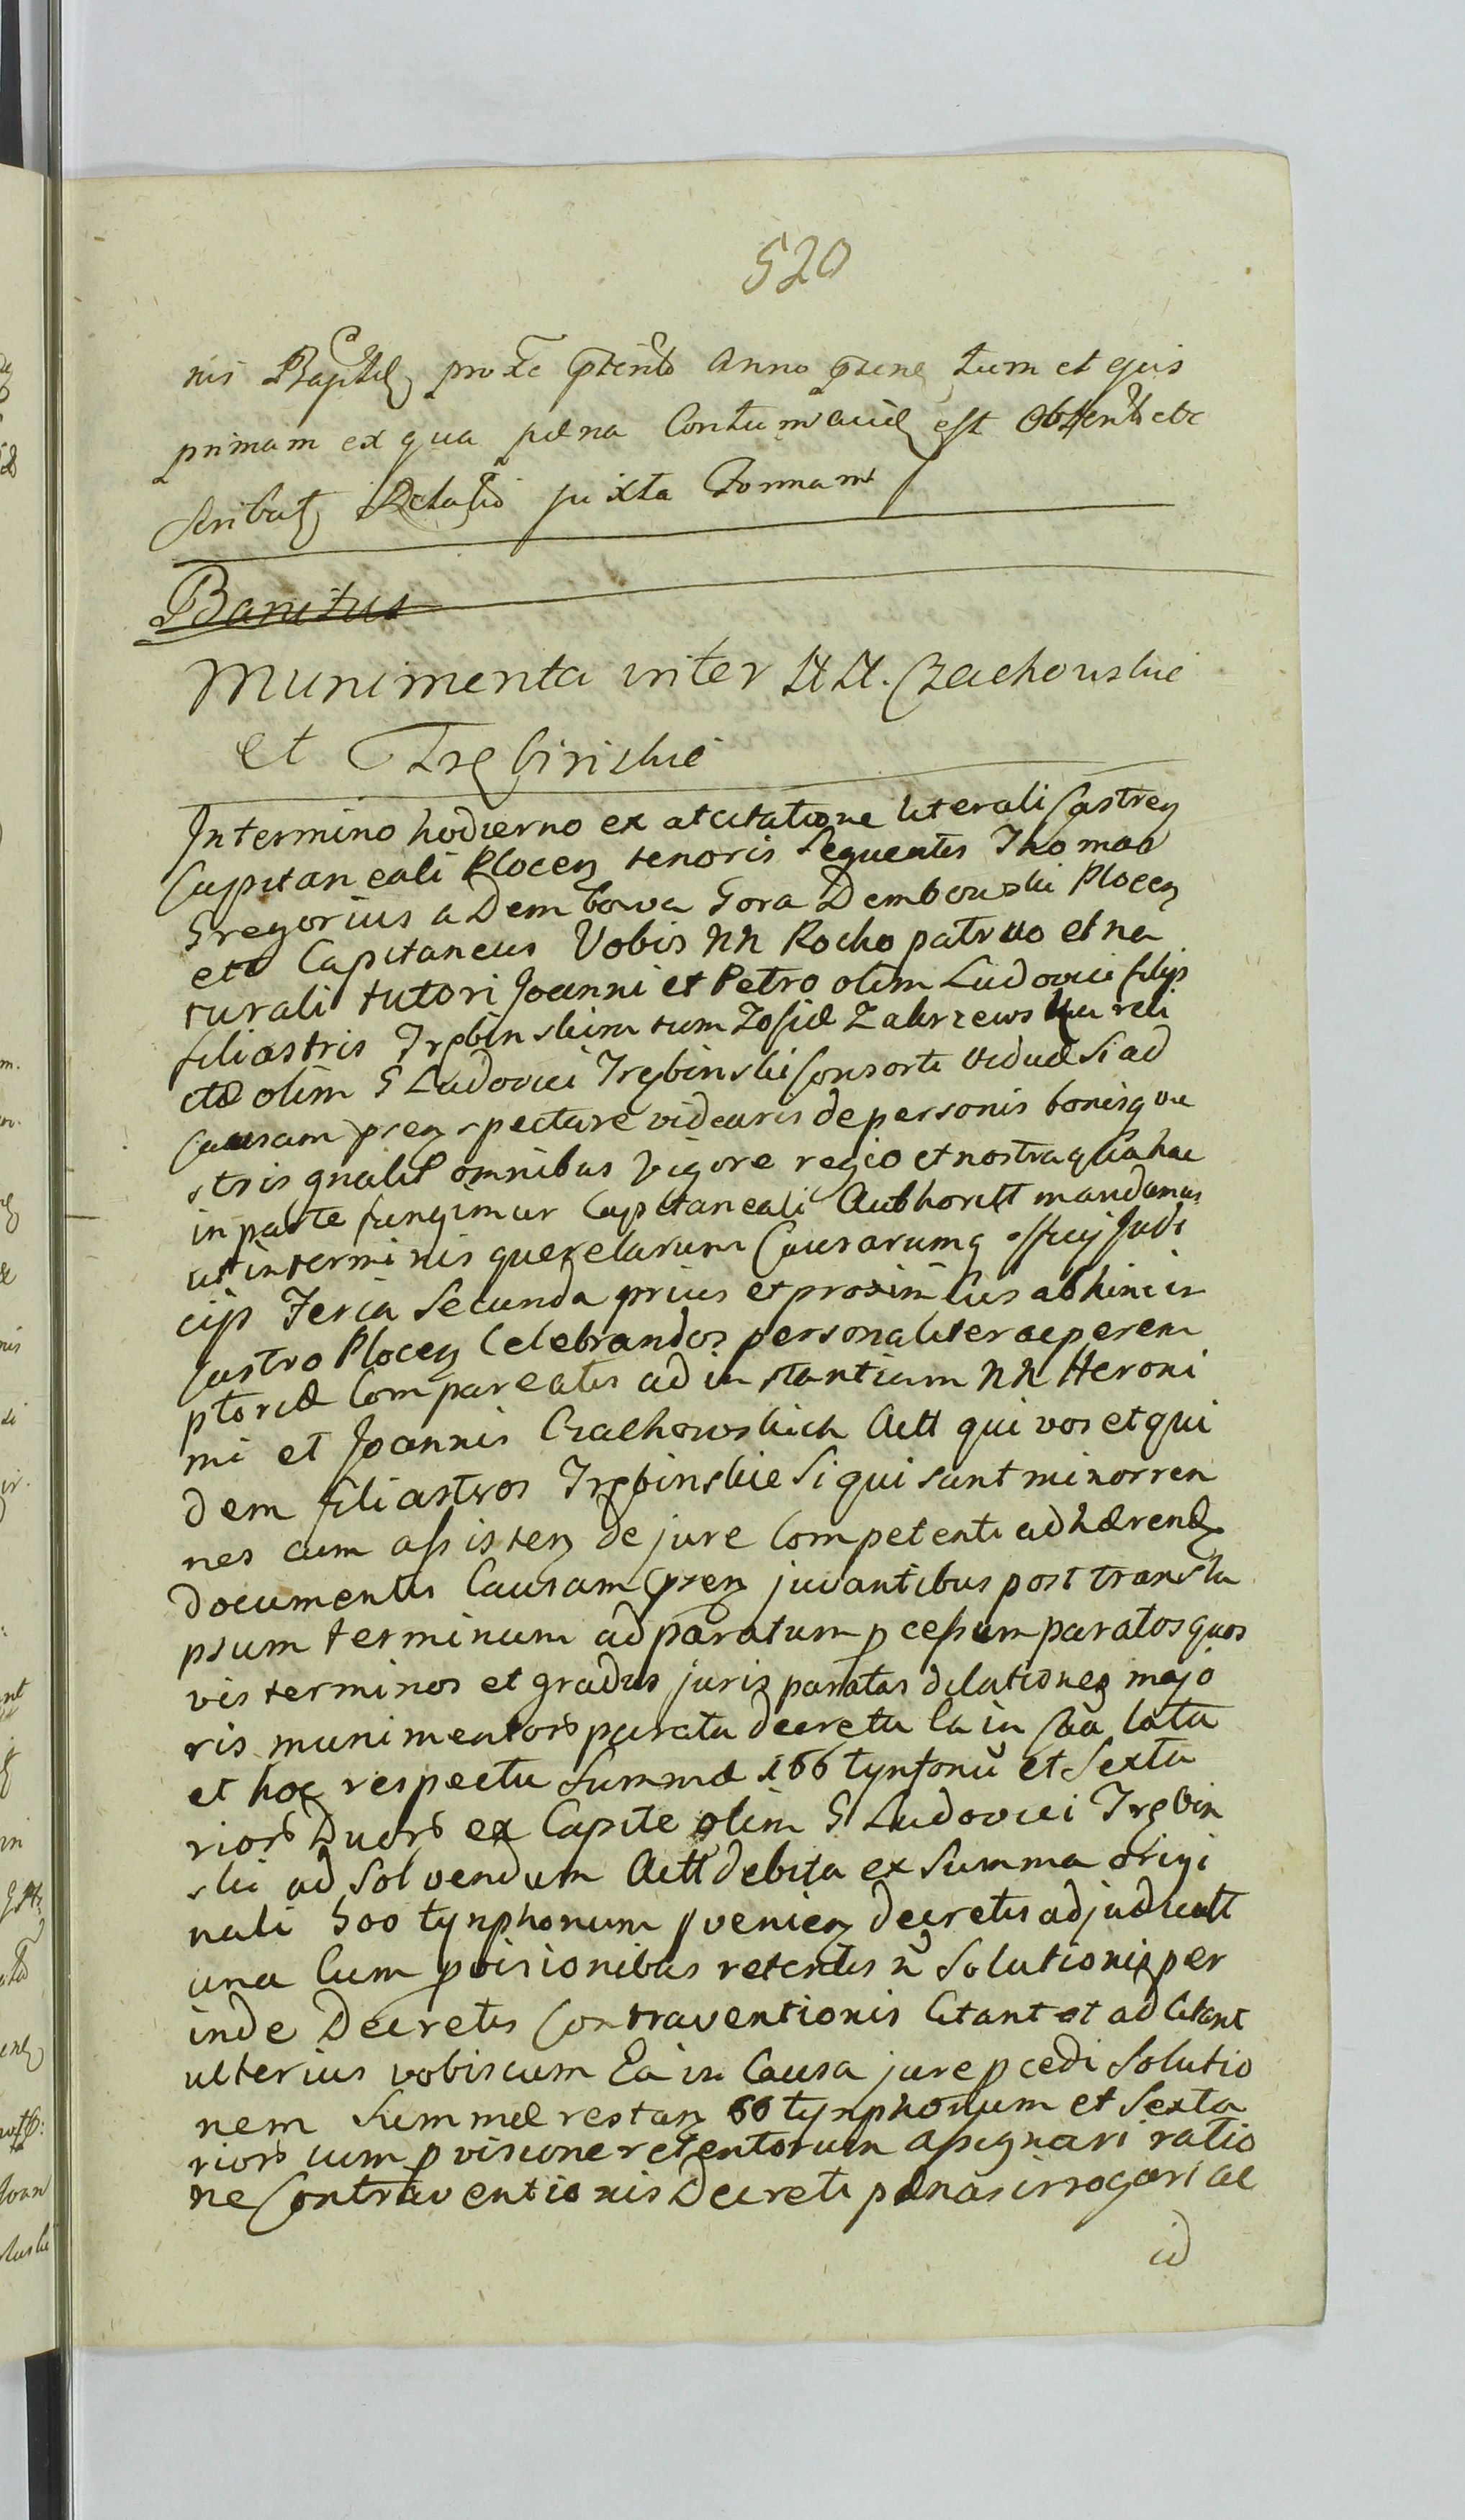 520
nis Baptae proxe pterito Anno praesen tum et ejus
primam ex qua paena Contumaciae est Obtent etc
Scribat Relatio juxta Formam
Banitus
Munimenta inter NN. Czachowskie
et Trębinskie
In termino hodierno ex at citatione literali Castren
Capitaneali Plocen tenoris Sequentis Thomas
Gregorius a Dembowa Gora Dembowski Plocen
etc Capitaneus Vobis NN Rocho patruo et na
turali tutori Joanni et Petro olim Ludovici filijs
filiastris Trębinskim tum Zofiae Zakrzewska reli
ctae olim G Ludovici Trębinski Consorti viduae Si ad
Causam prsen spectare videaris de personis bonisq ve
stris gnalit omnibus Vigore regio et nostra qua hac
in parte fungimur Capitaneali Authoritt mandamus
ut in terminis querelarum Causarumq officij Judi
cijs Feria Secunda prius et proximius abhinc in
Castro Plocen Celebrandos personaliter ac perem
ptoriae Compareatis ad instantiam NN Heroni
mi et Joannis Czachowskich Actt qui vos et qui
dem filiastros Trębinskie Si qui sunt minorren
nes cum assisten de jure Competenti adhaerendo
documentis Causam prsen juvantibus post transla
psum terminum ad paratum pcessum paratos quos
vis terminos et gradus juris paratas dilationes majo
ris munimentors parata decreta Ea in Caa lata
et hoc respectu Summae 166 tynfonu et Sexta
riors Duors ex Capite olim G Ludovici Trębin
ski ad Solvendum Actt debita ex Summa origi
nali 500 tynphonum pvenien decretis adjudicatt
una Cum pvisionibus retentis n Solutionis per
inde Decretis Contraventionis Citant et ad Citant
ulterius vobiscum Ea in Causa jure pcedi Solutio
nem Summae restan 66 tynphonum et Sexta
riors cum pvisione retentorum assignari ratio
ne Contraventionis Decreti paenas irrogari ac
id